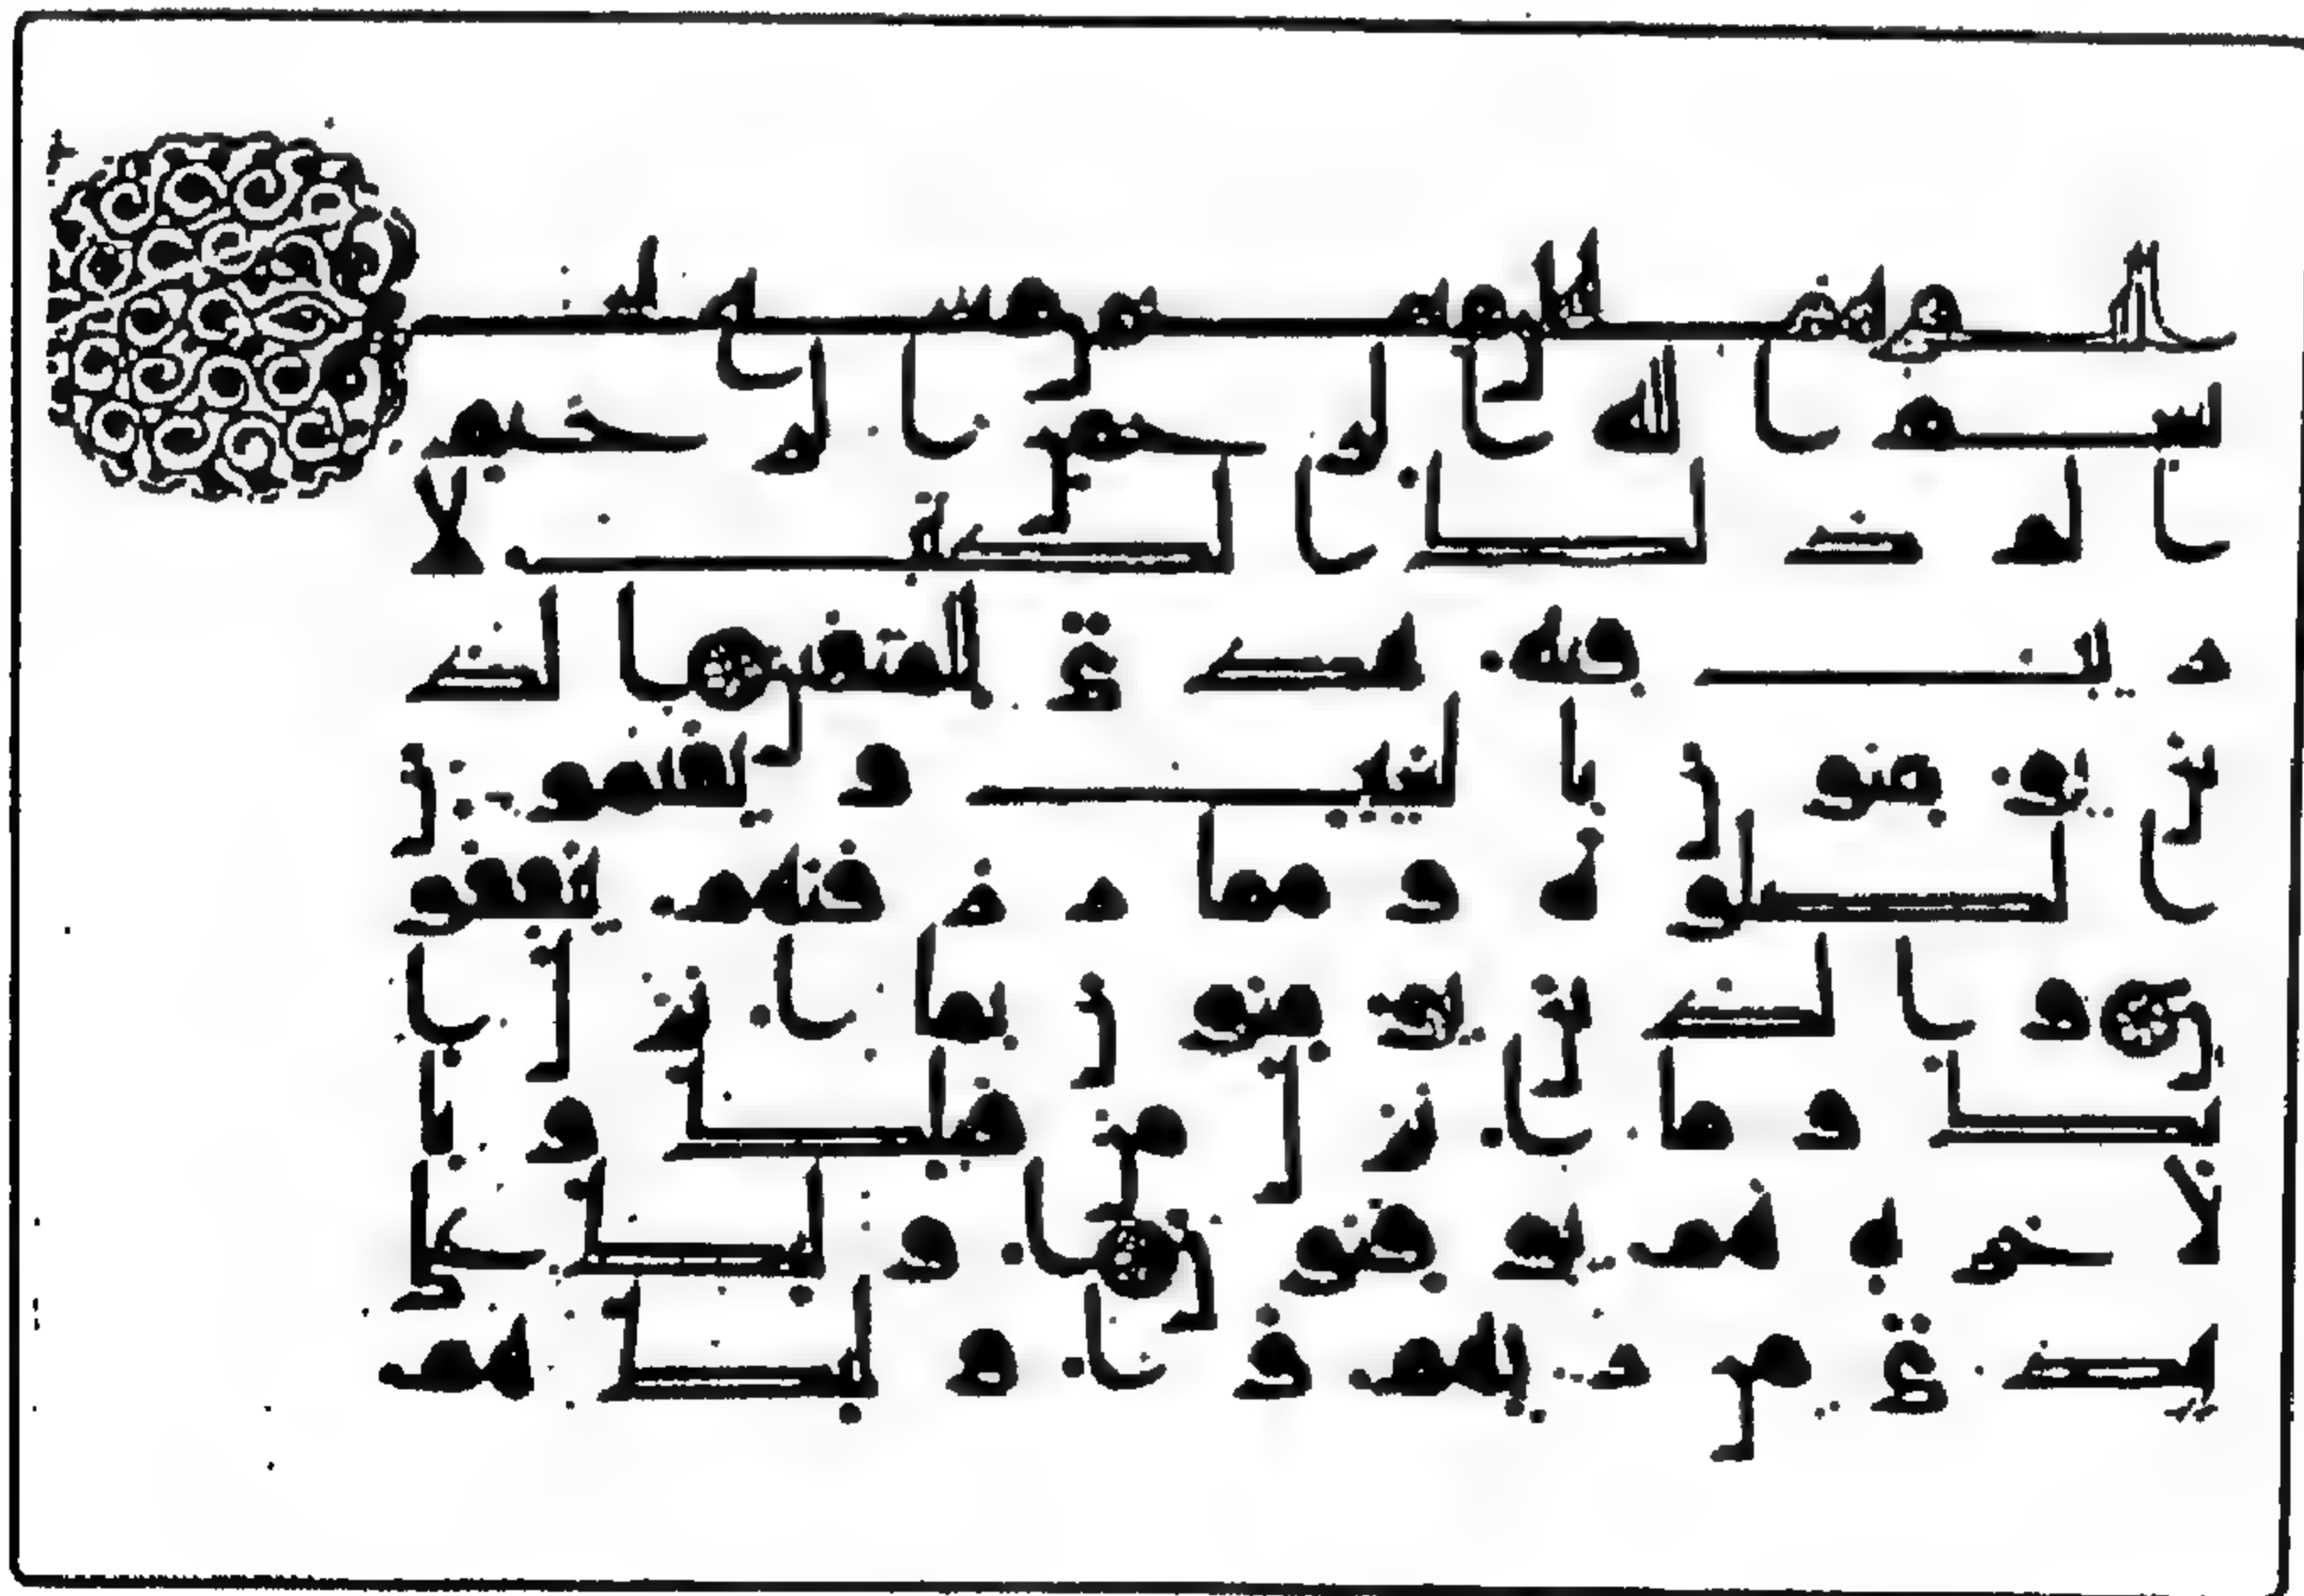 بسم الله الرحمن الرحيم
الم ذلك الكتب لا
ريب فيه هدى للمتقين الذ
ين يومنون بالغيب و يقيمون
الصلوة و مما رزقنهم ينفقو
ن و الذين يومنون بما انزل ا
ليك و ما انزل من قبلك و با
لاخرة هم يوقنون اولئك علـ
ى هدى من ربهم و اولئك هم